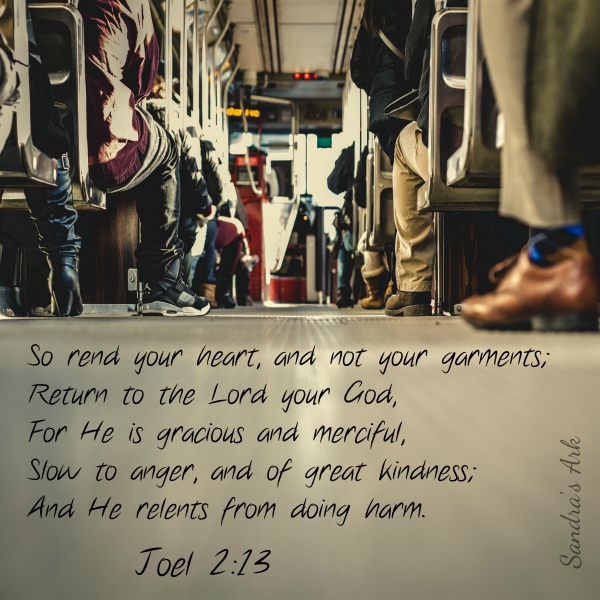 So rend your heart, and not your garments;
Return to the Lord your God,
For He is gracious and merciful,
Slow to anger, and of great kindness;
And He relents from doing harm.
Joel 2:13
Sandra's Ark